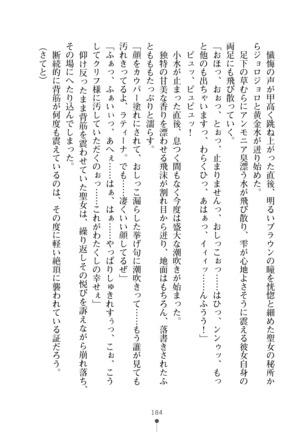 懺悔の声が甲高く跳ね上がった直後、明るいブラウンの瞳を恍惚と細めた聖女の秘所か
らジョロジョロと黄金水が迸り始めた。
足下の草むらにアンモニア臭漂う水が飛び散り、雫が心地よさそうに震える彼女自身の
両足にも飛び散っていく。
「おほっ、おぉっ、とぉっ、止まりませんっ、おしっこぉっ……ひっ、ンンゥッ、も
っと、もっと出ちゃいますっ、わらくひっ、あはぁっ、イィィッ……んふううっ！」
ピュッ、ピュピュッ！
小水が止まった直後、息つく間もなく今度は盛大な潮吹きが始まった。
独特の甘美な香りを漂わせる飛沫が割れ目から迸り、地面はもちろん、落書きされたふ
とももたっぷりと濡らす。
「顔をカウパー塗れにされて、おしっこ漏らした挙げ句に潮吹きして、自分の愛液でも
汚れきってるぜ、ラティーナ……でも、凄くいい顔してるぜ」
「ふぁっ、ふぁいぃっ、あへぇ……はぁ、はぁ……やっぱりしゅきれすぅっ、こぉ、こう
してクリフ様に汚していただくのぉっ……これがわたくの幸せぇ」
仰け反ったまま背筋を震わせていた聖女は、繰り返しその悦びを訴えながら崩れ落ち、
その場にへたり込んでしまった。
断続的に背筋が何度も震えているのは、その度に軽い絶頂に襲われている証だろう。
（さてと）
184